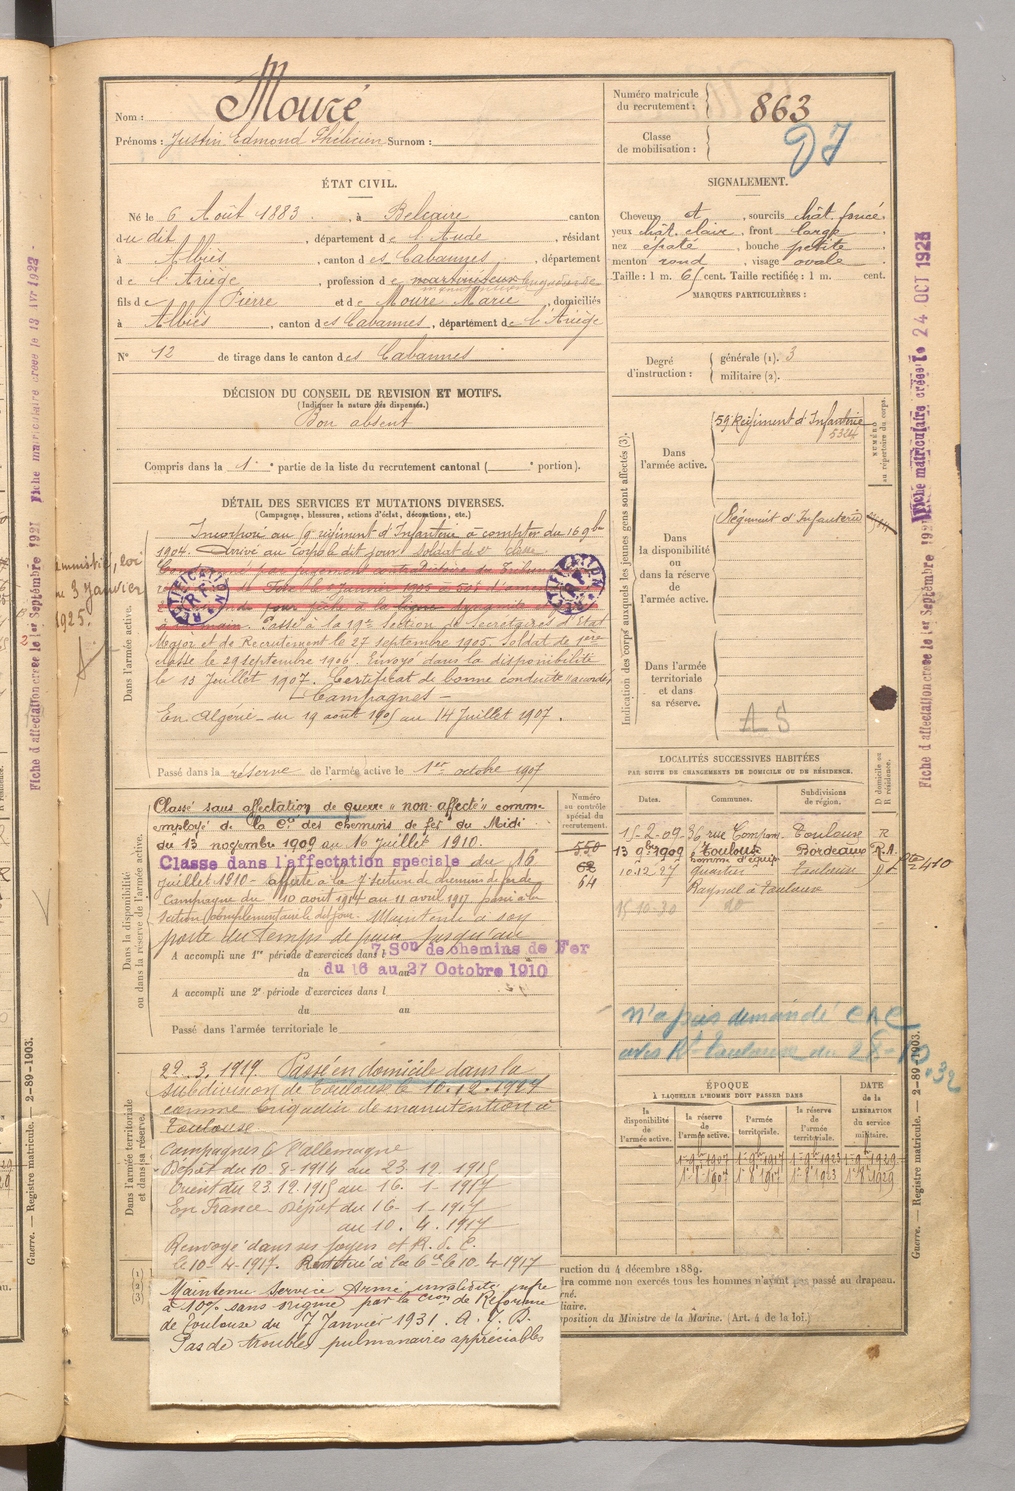 Nom : Mouré
Prénoms : Justin Edmond Thélicien Surnom :
Numéro matricule du recrutement : 863
Classe de mobilisation :
ÉTAT CIVIL.
Né le 6 Août 1883, à Belcaire canton
du dit, département de l'Aude, résidant
à Albiès, canton des Cabannes, département
de l'Ariège, profession de
fils de Pierre et de Moure Marie, domiciliés
à Albiès, canton des Cabannes, département de l'Ariège
N° 12 de tirage dans le canton des Cabannes
SIGNALEMENT.
Cheveux et, sourcils chât. foncé
yeux chât. clair, front large
nez épaté, bouche petite
menton rond, visage ovale
Taille : 1 m. 61 cent. Taille rectifiée : 1 m. cent.
MARQUES PARTICULIÈRES :
Degré d'instruction : générale (1). 3
militaire (2).
DÉCISION DU CONSEIL DE REVISION ET MOTIFS.
(Indiquer la nature des dispenses.)
Bon absent
Compris dans la 1e partie de la liste du recrutement cantonal ( e portion).
DÉTAIL DES SERVICES ET MUTATIONS DIVERSES.
(Campagnes, blessures, actions d'éclat, décorations, etc.)
Incorporé au 59 régiment d'Infanterie à compter du 16 9bre
1904. Arrivé au corps le dit jour Soldat de 2e classe.
Passé à la 19e Section de Secrétaires d'Etat
Major et de Recrutement le 27 septembre 1905. Soldat de 1ère
classe le 29 septembre 1906. Envoyé dans la disponibilité
le 13 Juillet 1907. Certificat de bonne conduite "accordé"
Campagnes
En Algérie du 19 août 1905 au 14 Juillet 1907.
Passé dans la réserve de l'armée active le 1er octobre 1907
Amnistié, loi
du 3 Janvier
1925.
Dans l'armée active.
Indication des corps auxquels les jeunes gens sont affectés (3).
NUMÉRO au répertoire du corps.
Dans l'armée active.
59 Régiment d'Infanterie
5324
Dans la disponibilité ou dans la réserve de l'armée active.
Régiment d'Infanterie
Dans l'armée territoriale et dans sa réserve.
AS
Dans la disponibilité ou dans la réserve de l'armée active.
Classé sans affectation de guerre "non affecté" comme
employé de la Cie des chemins de fer du Midi
du 13 novembre 1909 au 16 juillet 1910.
Classé dans l'affectation spéciale du 16
juillet 1910 - affecté à la 7e section de chemins de fer de
Campagne du 10 août 1914 au 11 avril 1917 passé à la
section complémentaire le dit jour. Maintenu à son
poste du temps de paix jusqu'au
A accompli une 1re période d'exercices dans l 7 Son de chemins de Fer
du 16 au 27 Octobre 1910
A accompli une 2e période d'exercices dans l
du au
Passé dans l'armée territoriale le
Numéro au contrôle spécial du recrutement.
550
62
54
LOCALITÉS SUCCESSIVES HABITÉES
PAR SUITE DE CHANGEMENTS DE DOMICILE OU DE RÉSIDENCE.
Dates. Communes. Subdivisions de région. D domicile ou R résidence.
15-2-09 36 rue Compans Toulouse R
13 9bre 1909 Toulouse Bordeaux R.A.
homme d'équipe
10.12 27 quartier Toulouse
Raynal à Toulouse
15-10-30 do
n'a pas demandé CAC
avis Rt Toulouse du 28-10-32
Dans l'armée territoriale et dans sa réserve.
22.3.1919. Passé en domicile dans la
subdivision de Toulouse le 10.12.1927
comme brigadier de manutention à
Toulouse.
Campagnes C l'allemagne
Dépôt du 10.8.1914 au 23.12.1915
Orient du 23.12.1915 au 16.1.1917
En France Dépôt du 16.1.1917
au 10.4.1917
Renvoyé dans ses foyers et R.d.C.
le 10.4.1917. Restitué à la Cie le 10.4.1917
Maintenu Service Armé invalidité infre
à 10% sans origine par la Cion de Réforme
de Toulouse du 7 Janvier 1931. A.J.B.
Pas de troubles pulmonaires appréciables
ÉPOQUE
À LAQUELLE L'HOMME DOIT PASSER DANS
la disponibilité de l'armée active. la réserve de l'armée active. l'armée territoriale. la réserve de l'armée territoriale.
DATE de la LIBÉRATION du service militaire.
1er 9bre 1907 1er 9bre 1917 1er 9bre 1923 1er 9bre 1929
1er 8bre 1907 1er 8bre 1917 1er 8bre 1923 1er 8bre 1929
(1)
(2)
(3)
ruction du 4 décembre 1889.
dra comme non exercés tous les hommes n'ayant pas passé au drapeau.
rné.
liaire.
position du Ministre de la Marine. (Art. 4 de la loi.)
Guerre. — Registre matricule. — 2-89-1903.
Guerre. — Registre matricule. — 2-89-1903.
Fiche d'affectation créée le 1er Septembre 1927 Fiche matriculaire créée le 24 OCT 1923
Fiche d'affectation créée le 1er Septembre 1927